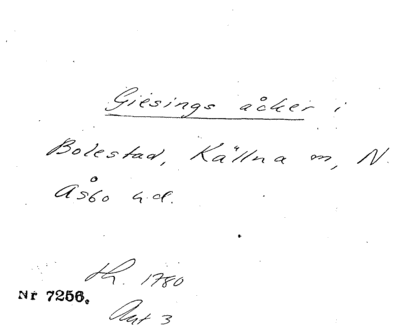 Giesings åcker i
Bolestad, Källna sn, N.
Åsbo hd.
th. 1780
Nr 7256.
Aut 3